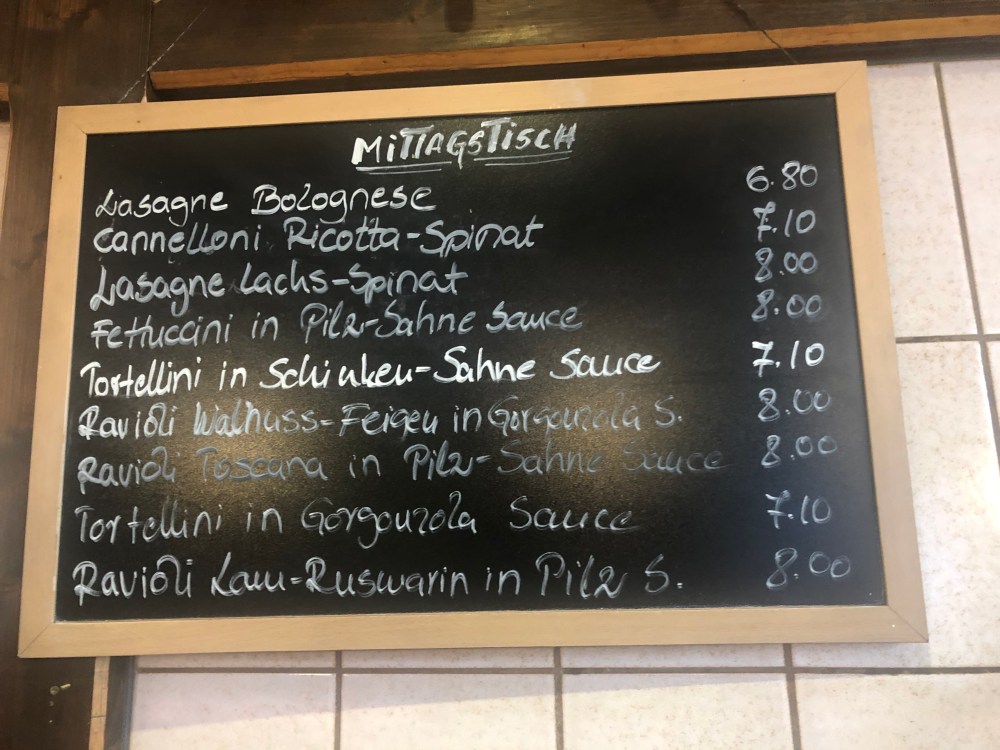 MITTAGSTISCH
Lasagne Bolognese 6.80
Cannelloni Ricotta-Spinat 7.10
Lasagne Lachs-Spinat 8.00
Fettuccini in Pilz-Sahne Sauce 8.00
Tortellini in Schinken-Sahne Sauce 7.10
Ravioli Walnuss-Feigen in Gorgonzola S. 8.00
Ravioli Toscana in Pilz-Sahne Sauce 8.00
Tortellini in Gorgonzola Sauce 7.10
Ravioli Lam-Ruswarin in Pilz S. 8.00